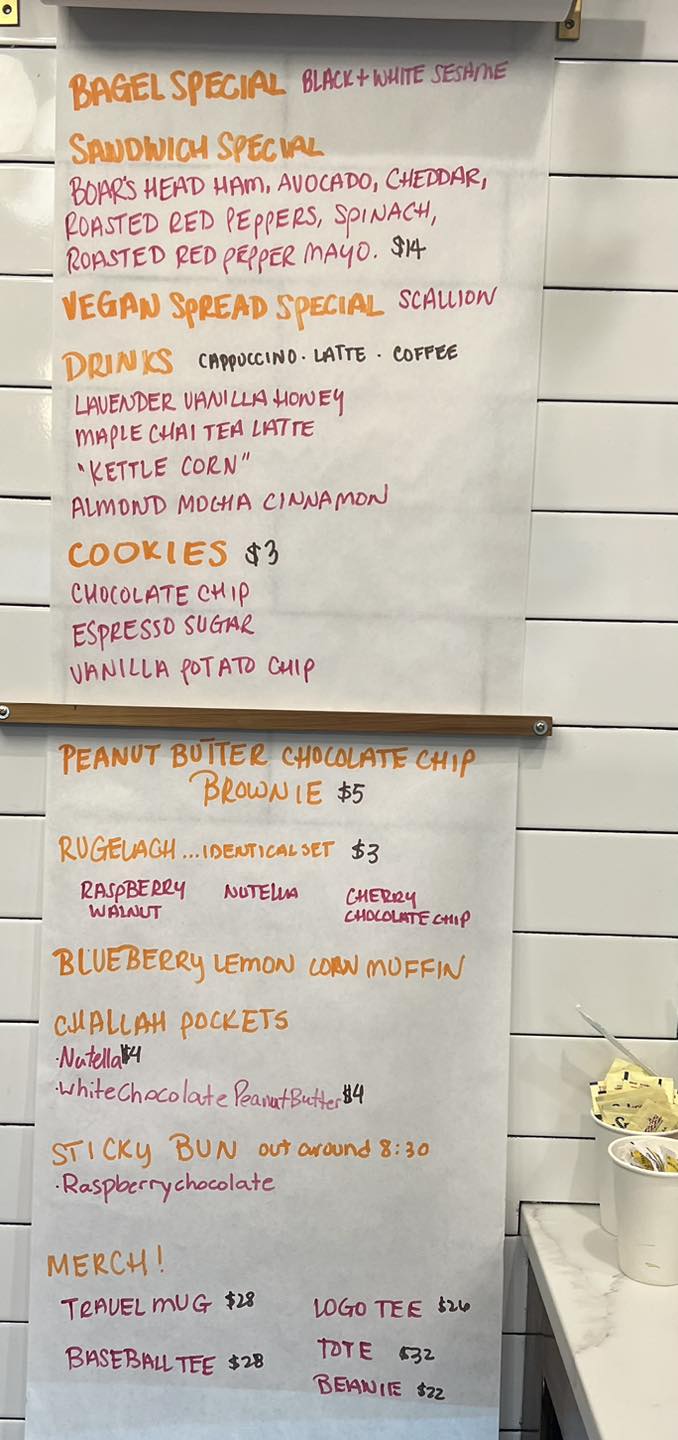 BAGEL SPECIAL BLACK + WHITE SESAME
SANDWICH SPECIAL
BOAR'S HEAD HAM, AVOCADO, CHEDDAR,
ROASTED RED PEPPERS, SPINACH,
ROASTED RED PEPPER MAYO. $14
VEGAN SPREAD SPECIAL SCALLION
DRINKS CAPPUCCINO · LATTE · COFFEE
LAVENDER VANILLA HONEY
MAPLE CHAI TEA LATTE
"KETTLE CORN"
ALMOND MOCHA CINNAMON
COOKIES $3
CHOCOLATE CHIP
ESPRESSO SUGAR
VANILLA POTATO CHIP
PEANUT BUTTER CHOCOLATE CHIP
BROWNIE $5
RUGELACH ... IDENTICAL SET $3
RASPBERRY NUTELLA CHERRY
WALNUT CHOCOLATE CHIP
BLUEBERRY LEMON CORN MUFFIN
CHALLAH POCKETS
·Nutella $4
·White Chocolate Peanut Butter $4
STICKY BUN out around 8:30
·Raspberry chocolate
MERCH!
TRAVEL MUG $28 LOGO TEE $26
BASEBALL TEE $28 TOTE $32
BEANIE $22